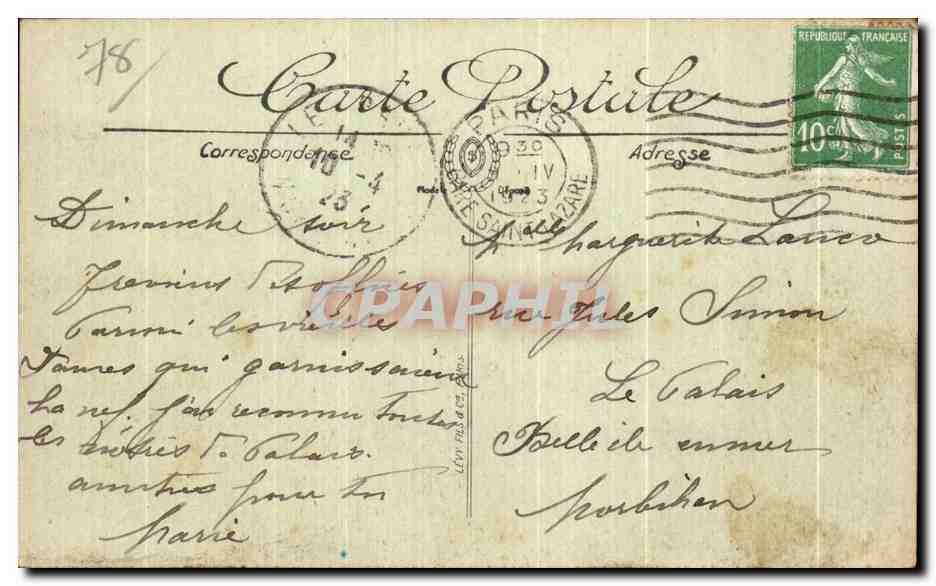 78
Carte Postale
Correspondance
Adresse
REPUBLIQUE FRANÇAISE
10c
POSTES
LE
14
10 -4
23
PARIS
9 30
IV
1923
GARE SAINT-LAZARE
Modèle Déposé
CPAPHIL
LÉVY FILS & Cie, PARIS
Dimanche soir
Parmi les vieilles
qui garnissaient
la nef. j'ai reconnu toutes
les Palais.
amitiés pour toi
Marie
Melle Marguerite
rue Jules Simon
Le Palais
Belle ile en mer
Morbihan